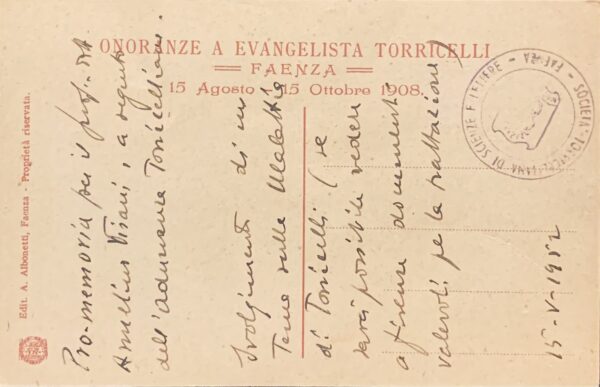 ONORANZE A EVANGELISTA TORRICELLI
FAENZA
15 Agosto - 15 Ottobre 1908.
Edit. A. Albonetti, Faenza - Proprietà riservata.
SOCIETA' TORRICELLIANA DI SCIENZE E LETTERE - FAENZA -
Pro-memoria per il prof. dott.
Amellino Visani, a seguito
dell'adunanza Torricelliana.
Svolgimento di un
Tema sulla Malattia
di Torricelli (se
sarà possibile vedere
a Firenze documenti
valevoli per la trattazione)
15-V-1952